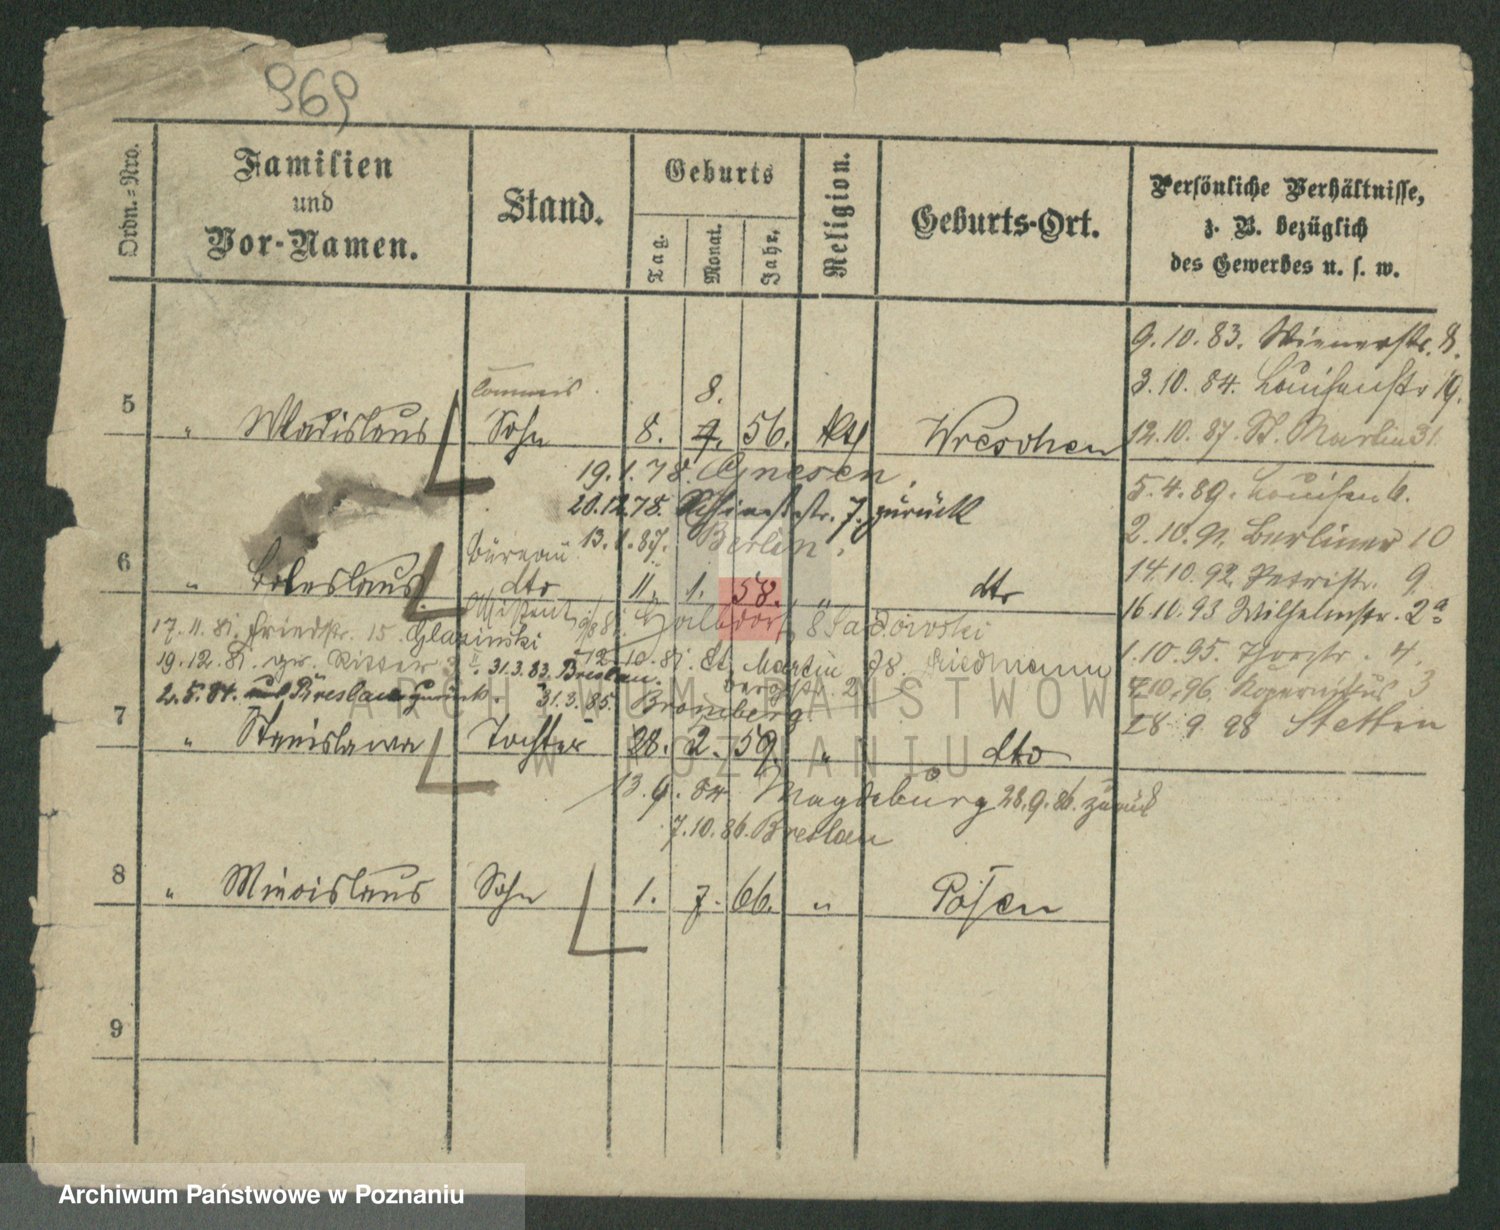 969
Ordn.=Nro.
Familien
und
Vor-Namen.
Stand.
Geburts
Tag.
Monat.
Jahr.
Religion.
Geburts-Ort.
Persönliche Verhältnisse,
z. B. bezüglich
des Gewerbes u. s. w.
9.10.83. Wienerstr. 8.
3.10.84. Louisenstr 19.
Commis
8.
5 " Wladislaus Sohn 8. 7. 56. kth Wreschen
12.10.87. St. Martin 31
19.1.78. Gnesen,
5.4.89. Louisen 6.
20.12.78. 7. zurück
13.1.87. Berlin,
2.10.91. Berliner 10
Büreau
6 " Boleslaus dto 11. 1. 58. " dto
14.10.92. Petristr. 9
Assistent Halbdorf 8 Sadowski
16.10.93 Wilhelmstr. 2a
17.11.81. Friedstr. 15. Glasinski
19.12.81. gr. Ritter 31.3.83. Breslau. 12.10.81. St. Martin 78. Friedmann
1.10.95. Thorstr. 4.
2.5.84. aus Breslau zurück. 31.3.85. Bromberg Bergstr 2
7.10.96. Kopernikus 3
28 9 98 Stettin
7 " Stanislawa Tochter 28. 2. 59. " dto
13.9.84 Magdeburg 28.9.86. zurück
7.10.86. Breslau
8 " Miecislaus Sohn 1. 7. 66. " Posen
9
ARCHIWUM PAŃSTWOWE
W POZNANIU
Archiwum Państwowe w Poznaniu